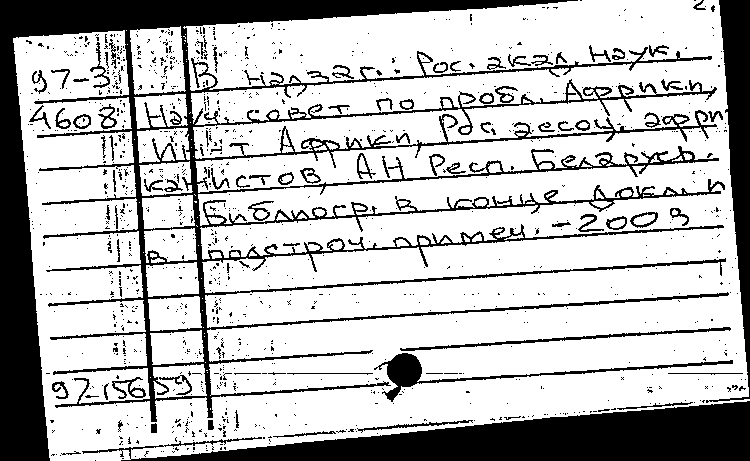 2.
97-3 В надзаг.: Рос. акад. наук.
4608 Науч. совет по пробл. Африки,
Ин-т Африки, Рос. ассоц. афри
канистов, АН Респ. Беларусь.
Библиогр. в конце докл. и
в подстроч. примеч. - 200 э
97-15659